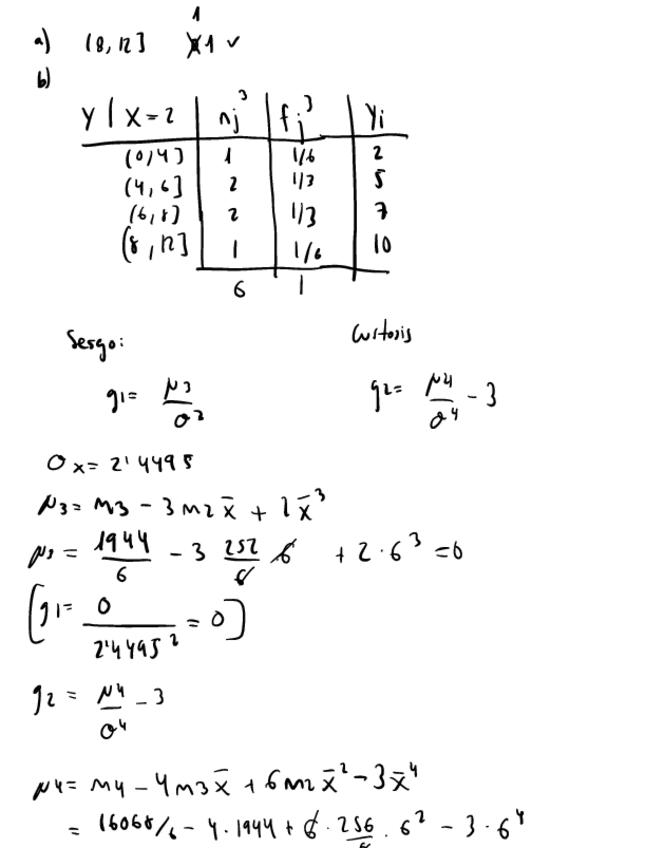 1
a) (8, 12] 1 ✓
b)
Y | X = 2 nj³ fj³ Yi
(0, 4] 1 1/6 2
(4, 6] 2 1/3 5
(6, 8] 2 1/3 7
(8, 12] 1 1/6 10
6 1
Sesgo: Curtosis
g1 = μ3 / σ² g2 = μ4 / σ⁴ - 3
σx = 2'4495
μ3 = m3 - 3 m2 x̄ + 2 x̄³
μ3 = 1944/6 - 3 252/6 6 + 2 · 6³ = 0
[g1 = 0 / 2'4495² = 0]
g2 = μ4 / σ⁴ - 3
μ4 = m4 - 4 m3 x̄ + 6 m2 x̄² - 3 x̄⁴
= 16068/6 - 4 · 1944 + 6 · 256/6 · 6² - 3 · 6⁴